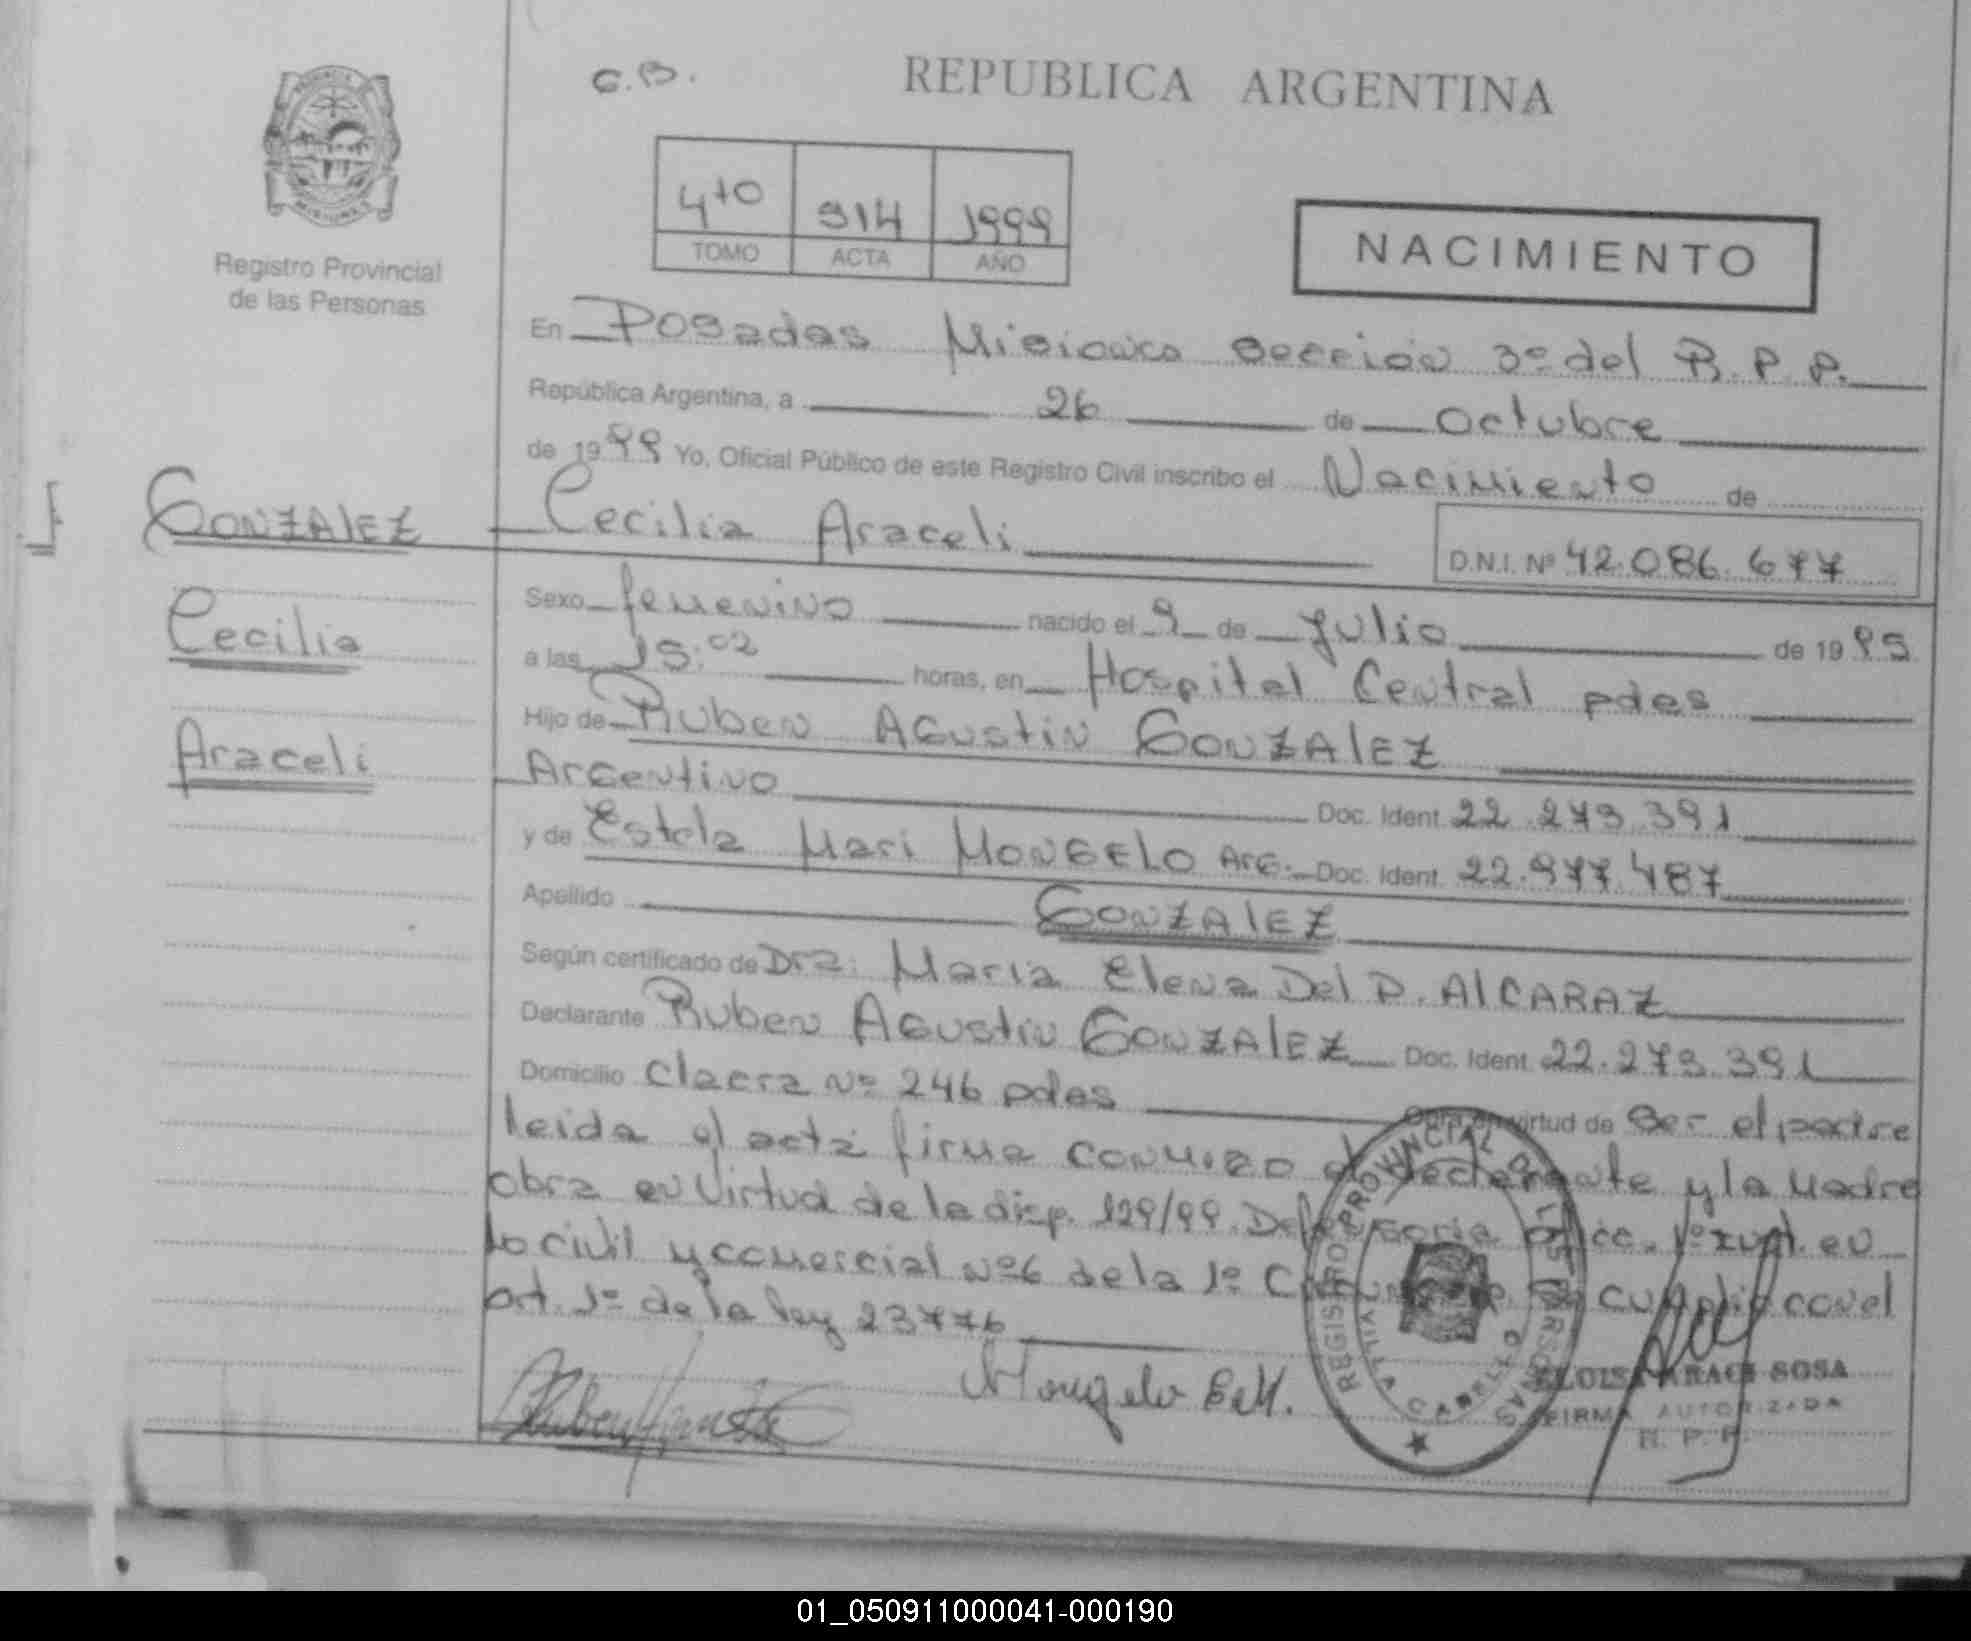 G.B. REPUBLICA ARGENTINA
4to 914 1999
TOMO ACTA AÑO
NACIMIENTO
PROVINCIA
MISIONES
Registro Provincial
de las Personas
En Posadas Misiones sección 3º del R.P.P.
República Argentina, a 26 de octubre
de 1999 Yo, Oficial Público de este Registro Civil inscribo el Nacimiento de
GONZALEZ Cecilia Araceli
D.N.I. Nº 42.086.677
Cecilia
Araceli
Sexo femenino nacido el 9 de Julio de 1995
a las 15:02 horas, en Hospital Central pdas
Hijo de Ruben Agustin GONZALEZ
Argentino Doc. Ident. 22.273.391
y de Estela Mari MONGELO Arg. Doc. Ident. 22.977.487
Apellido GONZALEZ
Según certificado de Dra: Maria Elena Del P. ALCARAZ
Declarante Ruben Agustin GONZALEZ Doc. Ident. 22.273.391
Domicilio Nº 246 pdas Obra en virtud de ser el padre
leida el acta firma conmigo el declarante y la Madre
obra en Virtud de la disp. 129/99. Defensoria ofic. 1º en
lo civil y comercial Nº6 de la 1º se cumplio con el
art. 1º de la ley 23776
Mongelo E.M.
REGISTRO PROVINCIAL DE LAS PERSONAS
ELOISA ARACI SOSA
FIRMA AUTORIZADA
R. P. P.
01_050911000041-000190